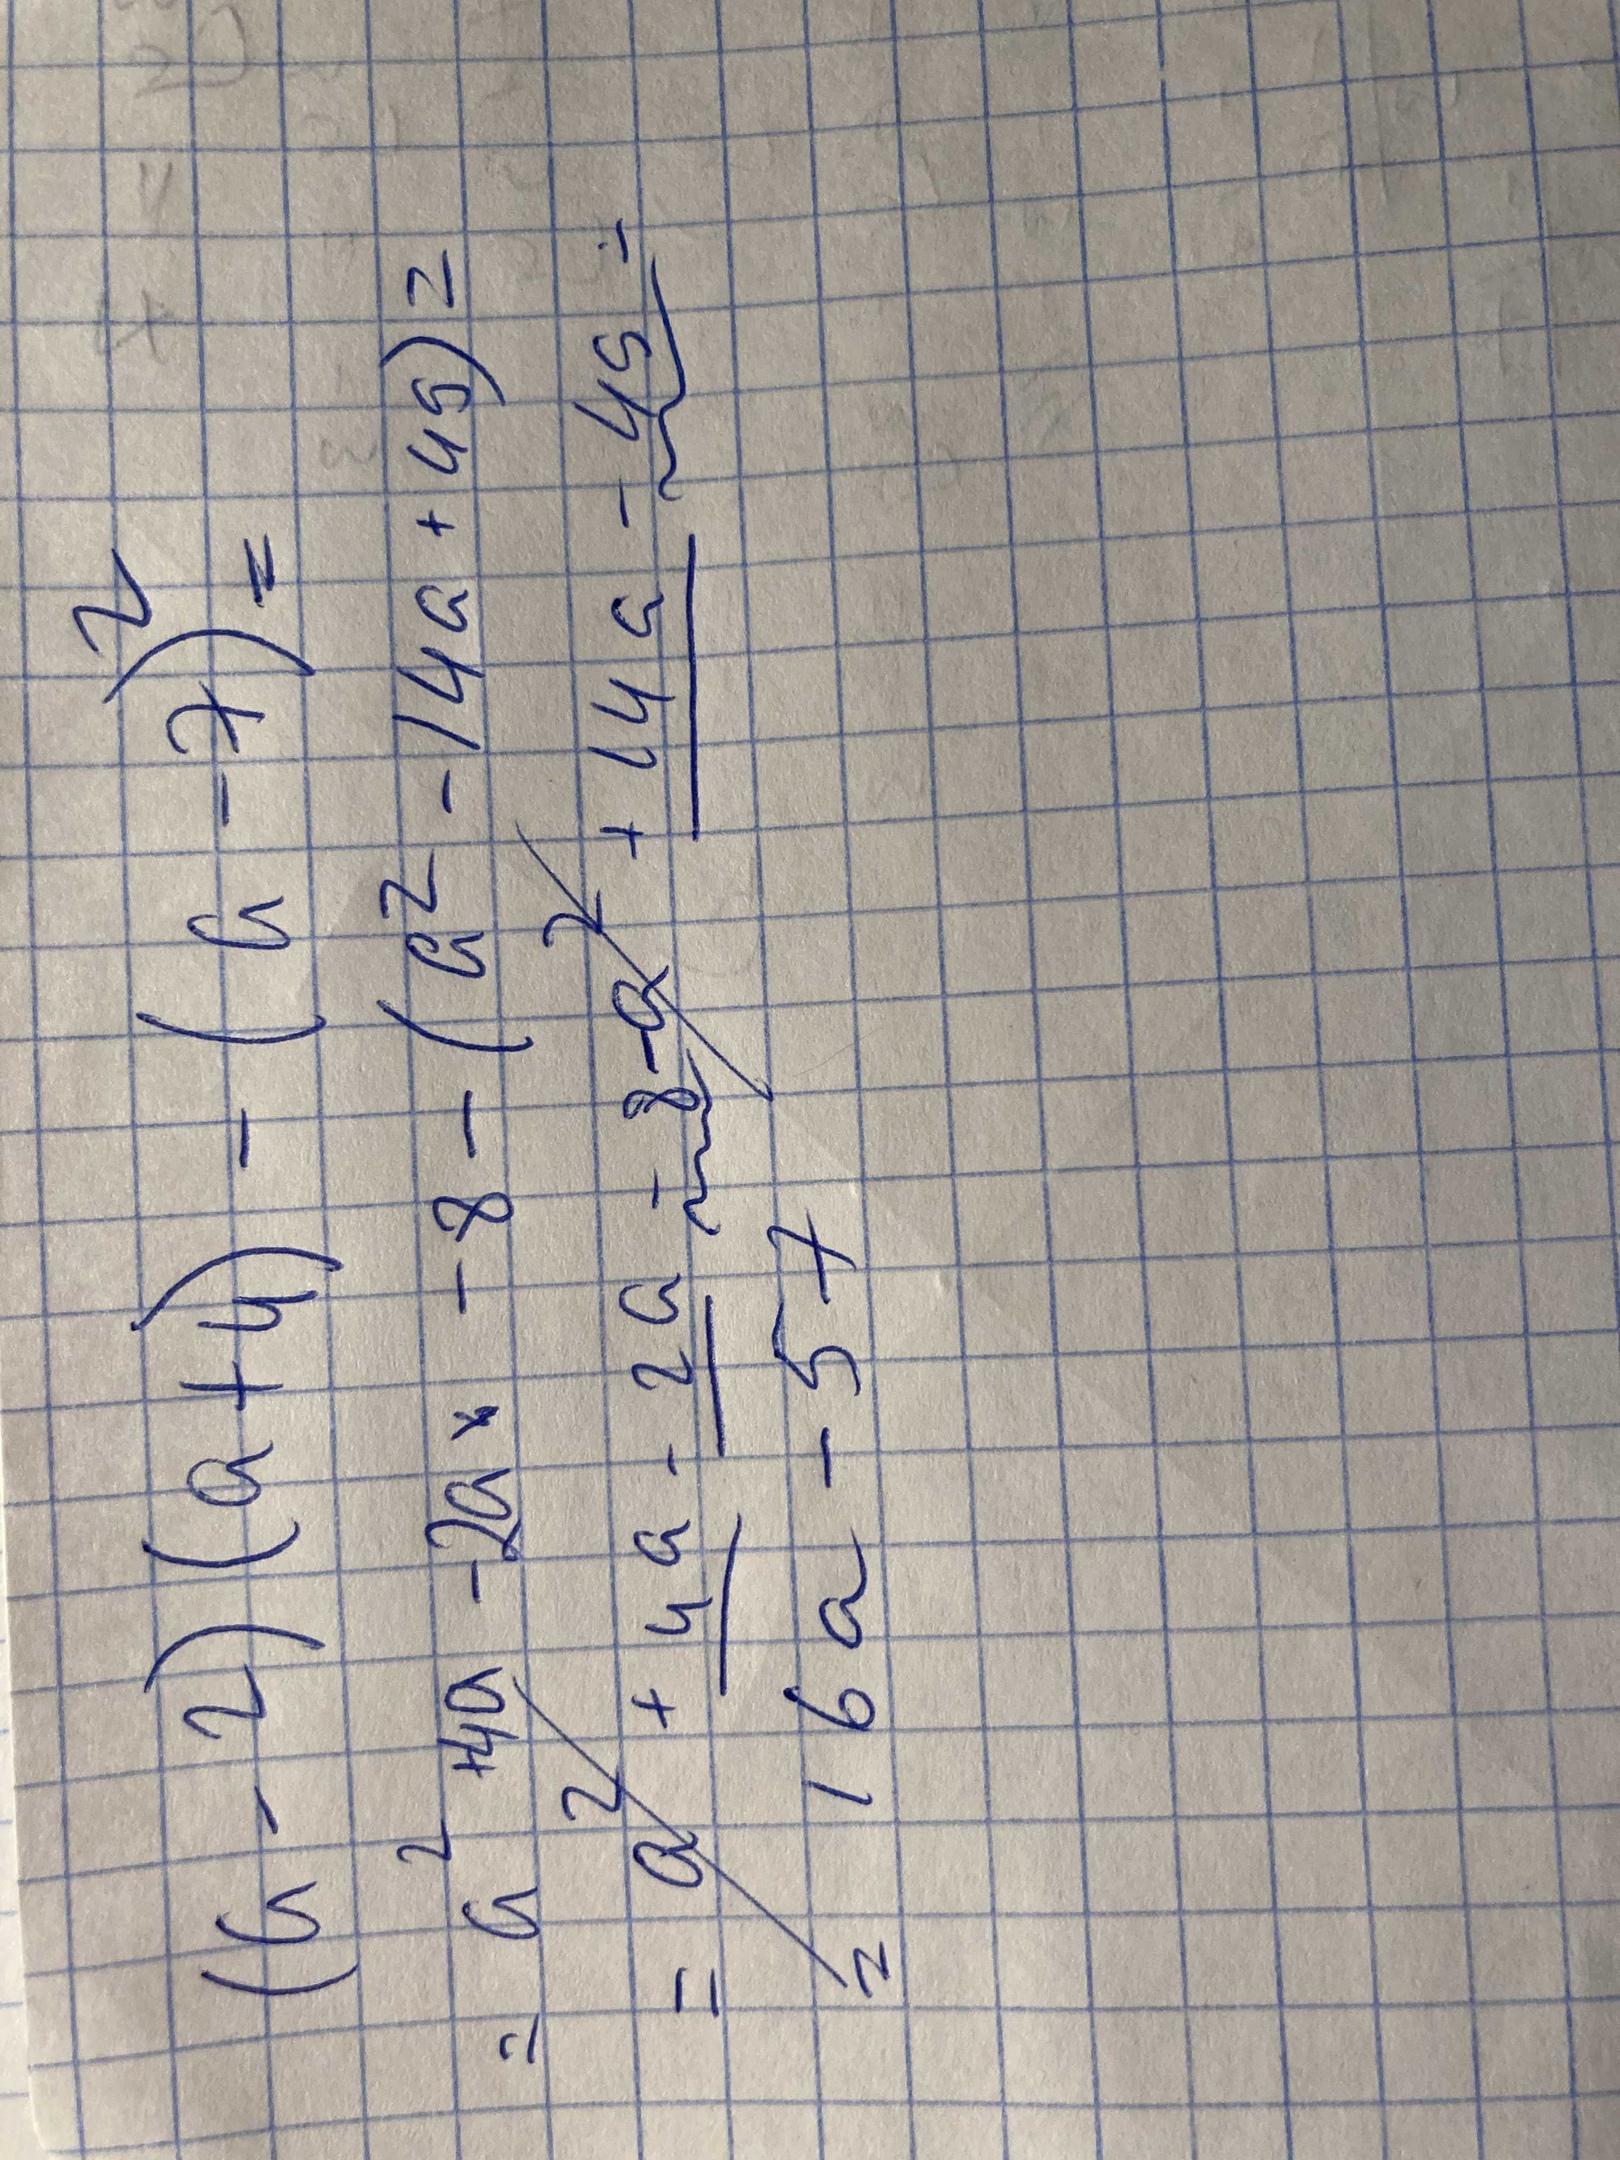 (a - 2) (a + 4) - (a - 7)² =
= a² + 4a - 2a - 8 - (a² - 14a + 49) =
= a² + 4a - 2a - 8 - a² + 14a - 49 =
= 16a - 57